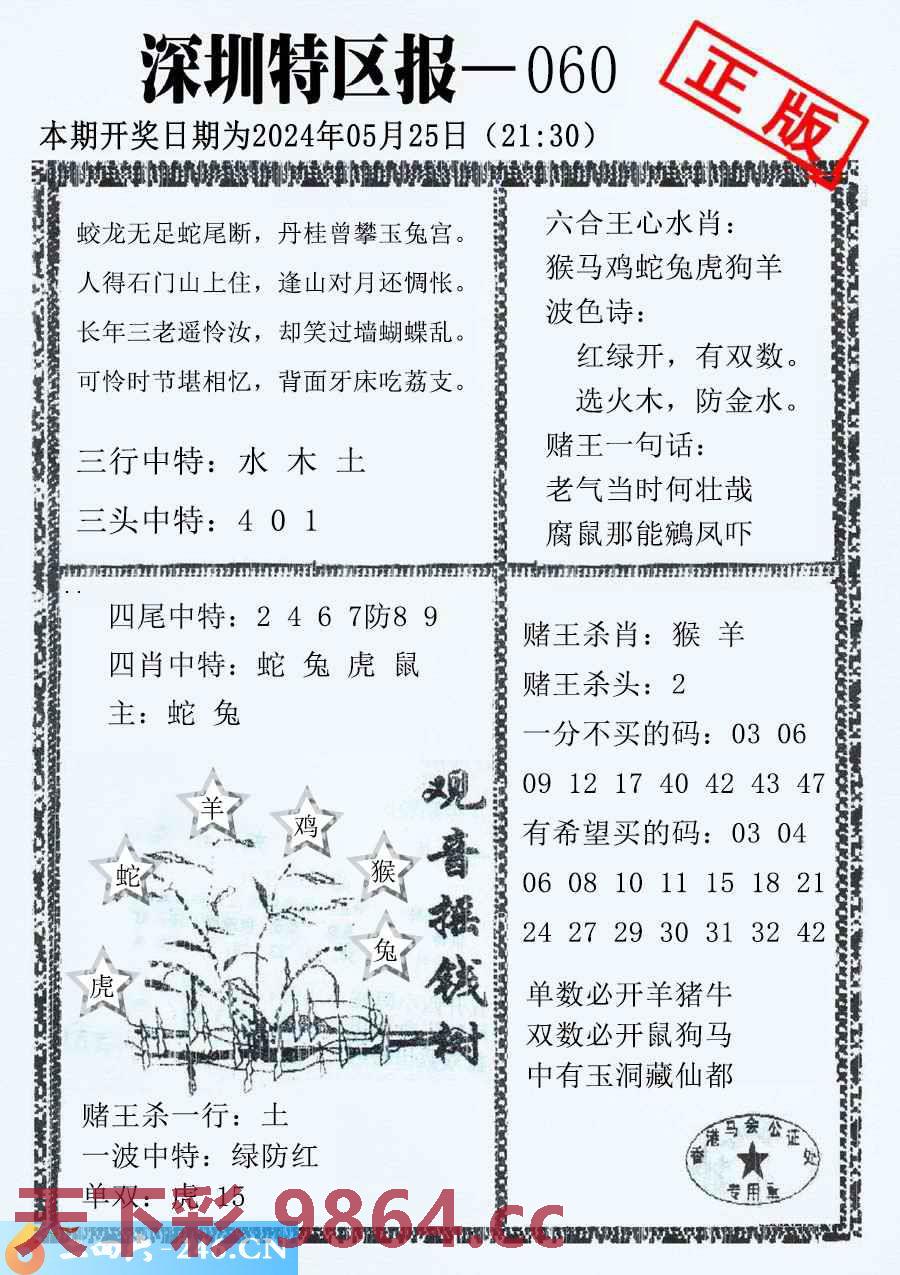 深圳特区报—060
正版
本期开奖日期为2024年05月25日（21:30）
蛟龙无足蛇尾断，丹桂曾攀玉兔宫。
人得石门山上住，逢山对月还惆怅。
长年三老遥怜汝，却笑过墙蝴蝶乱。
可怜时节堪相忆，背面牙床吃荔支。
三行中特：水 木 土
三头中特：4 0 1
六合王心水肖：
猴马鸡蛇兔虎狗羊
波色诗：
红绿开，有双数。
选火木，防金水。
赌王一句话：
老气当时何壮哉
腐鼠那能鵷凤吓
四尾中特：2 4 6 7防8 9
四肖中特：蛇 兔 虎 鼠
主：蛇 兔
羊
鸡
蛇
猴
兔
虎
观音摇钱树
赌王杀一行：土
一波中特：绿防红
单双：虎 15
赌王杀肖：猴 羊
赌王杀头：2
一分不买的码：03 06
09 12 17 40 42 43 47
有希望买的码：03 04
06 08 10 11 15 18 21
24 27 29 30 31 32 42
单数必开羊猪牛
双数必开鼠狗马
中有玉洞藏仙都
香港马会公证处
专用章
天下彩 9864.cc
-246.CN